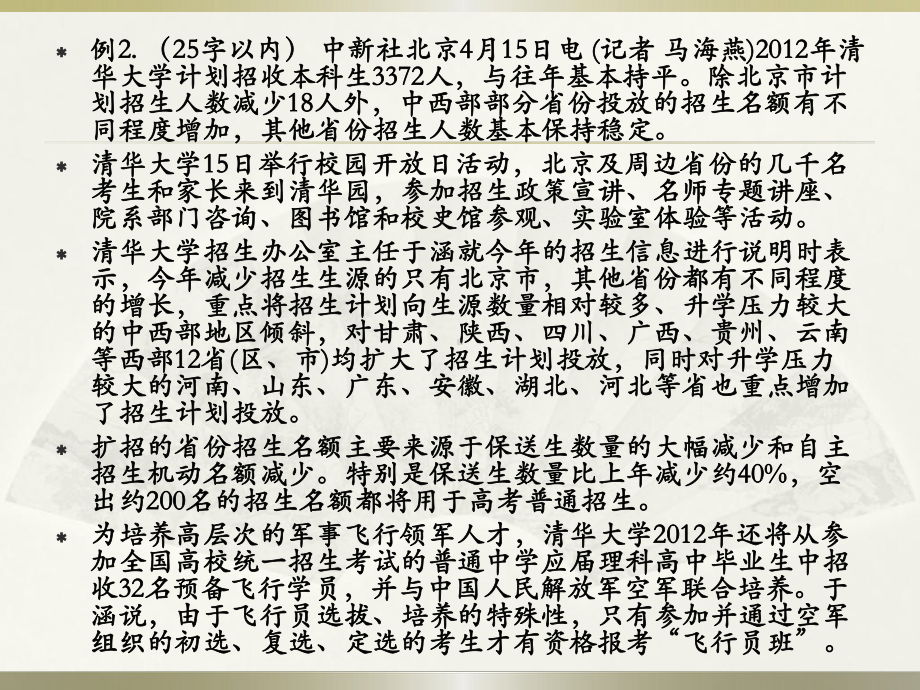 例2.（25字以内） 中新社北京4月15日电 (记者 马海燕)2012年清
华大学计划招收本科生3372人，与往年基本持平。除北京市计
划招生人数减少18人外，中西部部分省份投放的招生名额有不
同程度增加，其他省份招生人数基本保持稳定。
清华大学15日举行校园开放日活动，北京及周边省份的几千名
考生和家长来到清华园，参加招生政策宣讲、名师专题讲座、
院系部门咨询、图书馆和校史馆参观、实验室体验等活动。
清华大学招生办公室主任于涵就今年的招生信息进行说明时表
示，今年减少招生生源的只有北京市，其他省份都有不同程度
的增长，重点将招生计划向生源数量相对较多、升学压力较大
的中西部地区倾斜，对甘肃、陕西、四川、广西、贵州、云南
等西部12省(区、市)均扩大了招生计划投放，同时对升学压力
较大的河南、山东、广东、安徽、湖北、河北等省也重点增加
了招生计划投放。
扩招的省份招生名额主要来源于保送生数量的大幅减少和自主
招生机动名额减少。特别是保送生数量比上年减少约40%，空
出约200名的招生名额都将用于高考普通招生。
为培养高层次的军事飞行领军人才，清华大学2012年还将从参
加全国高校统一招生考试的普通中学应届理科高中毕业生中招
收32名预备飞行学员，并与中国人民解放军空军联合培养。于
涵说，由于飞行员选拔、培养的特殊性，只有参加并通过空军
组织的初选、复选、定选的考生才有资格报考“飞行员班”。